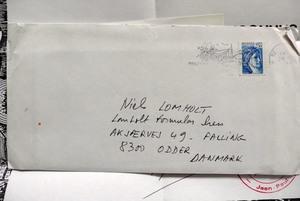 Niels LOMHOLT
Lomholt Formular Press
AKSJERVEJ 49. FALLING
8300 ODDER
DANMARK
Jean-